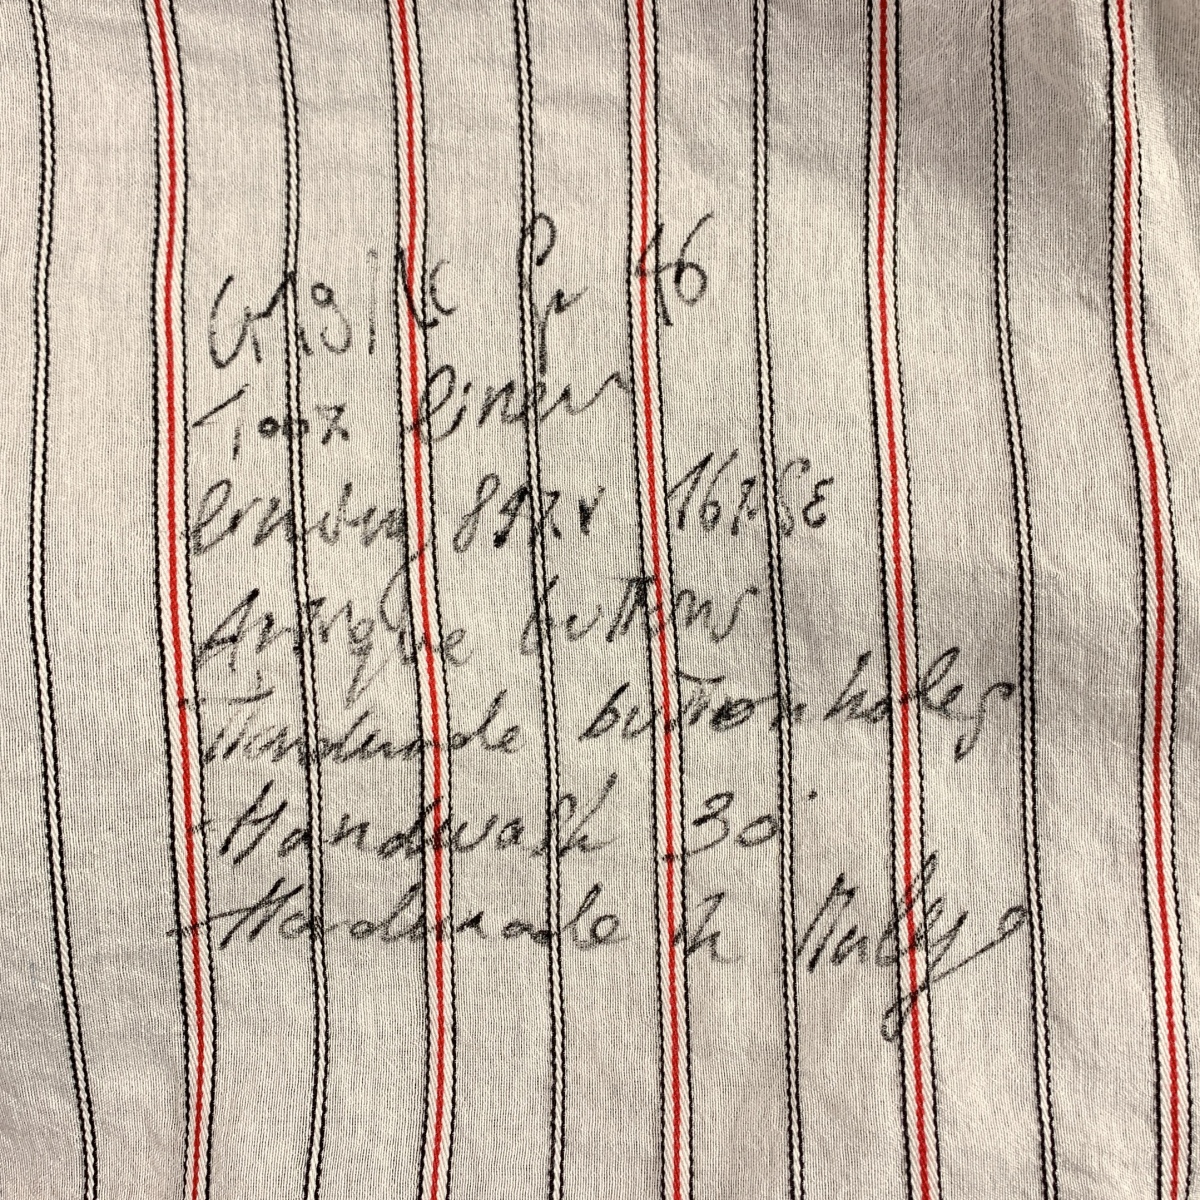 46
100% linen
lining 84% V 16% SE
Antique buttons
Handmade buttonholes
Handwash 30°
Handmade in Italy